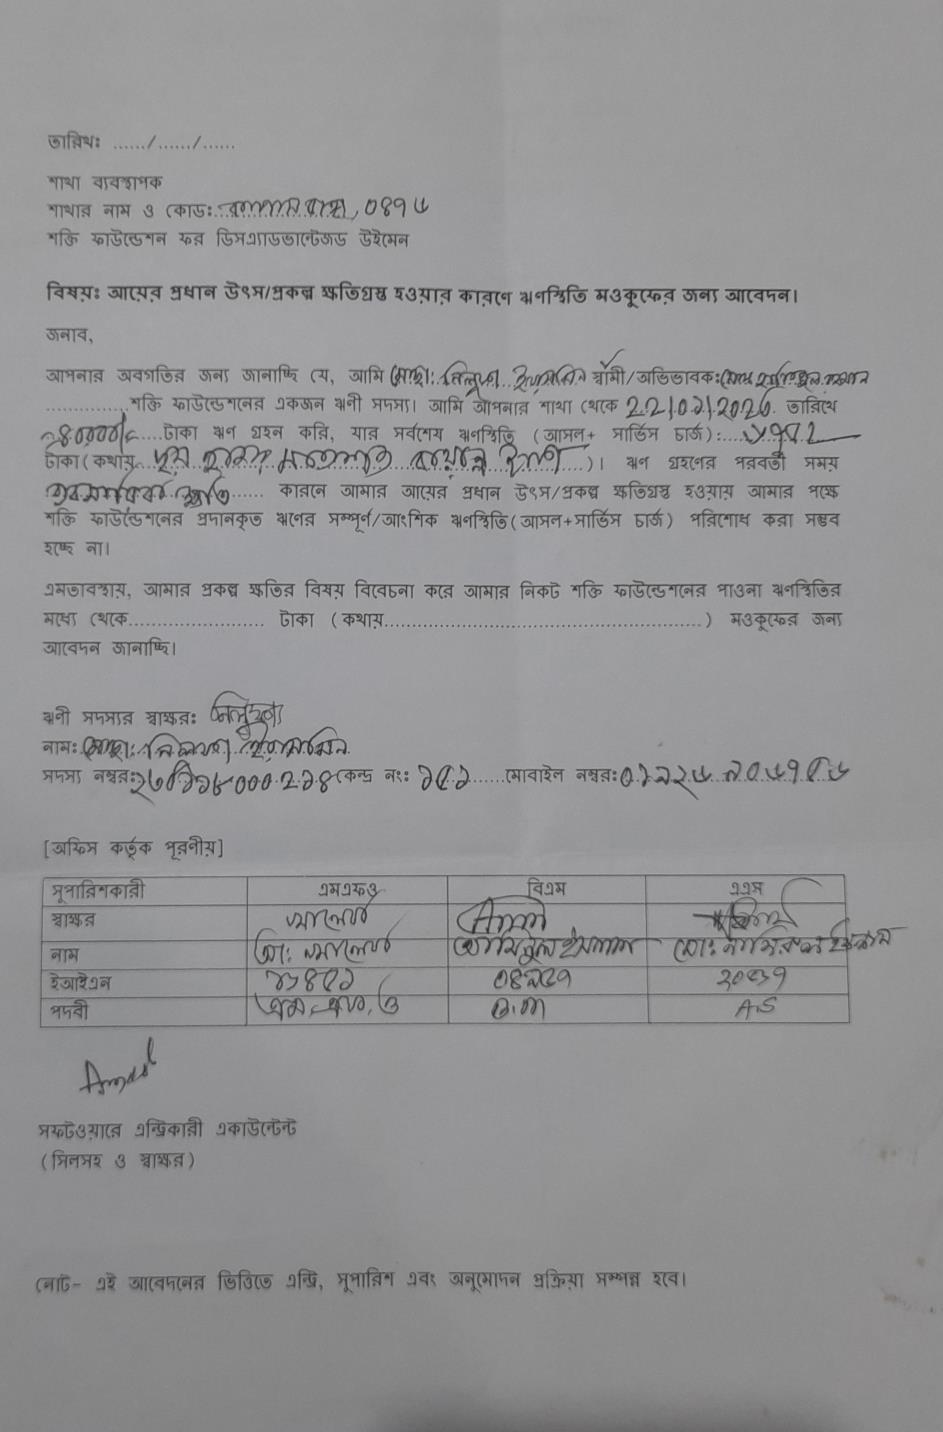 তারিখঃ ....../....../......
শাখা ব্যবস্থাপক
শাখার নাম ও কোডঃ
শক্তি ফাউন্ডেশন ফর ডিসএ্যাডভান্টেজড উইমেন
বিষয়ঃ আয়ের প্রধান উৎস/প্রকল্প ক্ষতিগ্রস্থ হওয়ার কারণে ঋণস্থিতি মওকুফের জন্য আবেদন।
জনাব,
আপনার অবগতির জন্য জানাচ্ছি যে, আমি মোছা: নিলুফা ইয়াসমিন স্বামী/অভিভাবক:
..............শক্তি ফাউন্ডেশনের একজন ঋনী সদস্য। আমি আপনার শাখা থেকে তারিখে
40000/= টাকা ঋণ গ্রহন করি, যার সর্বশেষ ঋণস্থিতি (আসল+ সার্ভিস চার্জ):
টাকা (কথায় হাজার সাতশত )। ঋণ গ্রহণের পরবর্তী সময়
ক্ষতি...... কারনে আমার আয়ের প্রধান উৎস/প্রকল্প ক্ষতিগ্রস্থ হওয়ায় আমার পক্ষে
শক্তি ফাউন্ডেশনের প্রদানকৃত ঋণের সম্পূর্ণ/আংশিক ঋণস্থিতি(আসল+সার্ভিস চার্জ) পরিশোধ করা সম্ভব
হচ্ছে না।
এমতাবস্থায়, আমার প্রকল্প ক্ষতির বিষয় বিবেচনা করে আমার নিকট শক্তি ফাউন্ডেশনের পাওনা ঋণস্থিতির
মধ্যে থেকে........................ টাকা (কথায়......................................................) মওকুফের জন্য
আবেদন জানাচ্ছি।
ঋণী সদস্যর স্বাক্ষরঃ নিলুফা
নামঃ মোছা: নিলুফা ইয়াসমিন
সদস্য নম্বরঃ কেন্দ্র নংঃ ১৫১......মোবাইল নম্বরঃ
[অফিস কর্তৃক পূরণীয়]
সুপারিশকারী এমএফও বিএম এএস
স্বাক্ষর
নাম আমিনুল ইসলাম
ইআইএন
পদবী এম, এফ, ও B.M A.S
সফটওয়ারে এন্ট্রিকারী একাউন্টেন্ট
(সিলসহ ও স্বাক্ষর)
নোট- এই আবেদনের ভিত্তিতে এন্ট্রি, সুপারিশ এবং অনুমোদন প্রক্রিয়া সম্পন্ন হবে।